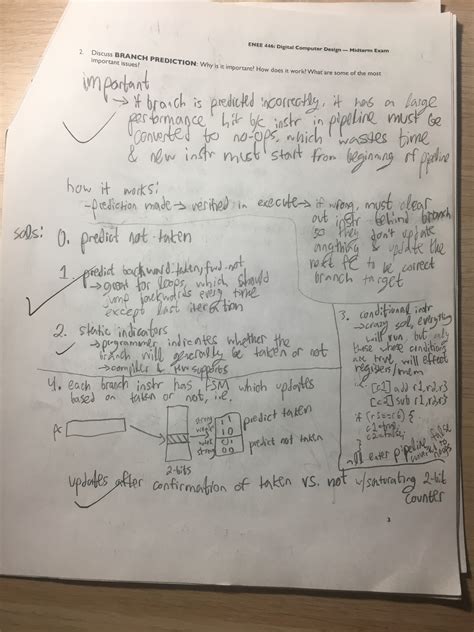 ENEE 446: Digital Computer Design — Midterm Exam
2. Discuss BRANCH PREDICTION: Why is it important? How does it work? What are some of the most
important issues?
important
→ if branch is predicted incorrectly, it has a large
performance hit b/c instr in pipeline must be
converted to no-ops, which wastes time
& new instr must start from beginning of pipeline
how it works:
-prediction made → verified in execute → if wrong, must clear
out instr behind branch
so they don't update
anything & update the
next PC to be correct
branch target
sols:
0. predict not taken
1. predict backward taken, fwd not
→ great for loops, which should
jump backwards every time
except last iteration
2. static indicators
→ programmer indicates whether the
branch will generally be taken or not
→ compiler & HW supports
3. conditional instr
→ crazy sols, everything
will run but only
those whose conditions
are true, will effect
registers/mem
[c1] add r1,r2,r3
[c2] sub r1,r2,r3
if (r5==r6) {
}
→ all enter pipeline
4. each branch instr has FSM which updates
based on taken or not, i.e.
PC
strong 11
weak 10
predict taken
weak 01
strong 00
predict not taken
2-bits
updates after confirmation of taken vs. not w/saturating 2-bit
counter
3